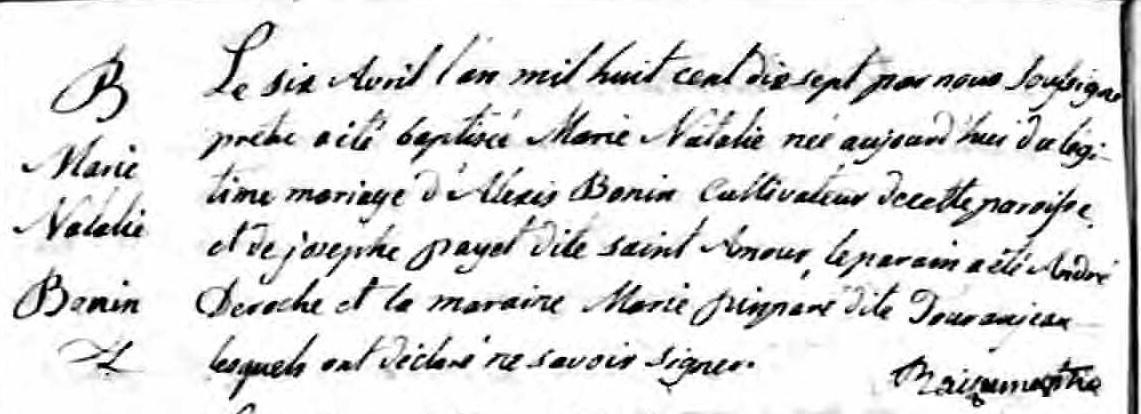 B
Marie
Natalie
Bonin
Le six Avril l'an mil huit cent dix sept par nous soussigné
prêtre a été baptisée Marie Natalie née aujourd'hui du légi-
time mariage d'Alexis Bonin Cultivateur de cette paroisse
et de josephe payet dite saint Amour, le parain a été André
Deroche et la maraine Marie dite
lesquels ont déclaré ne savoir signer.